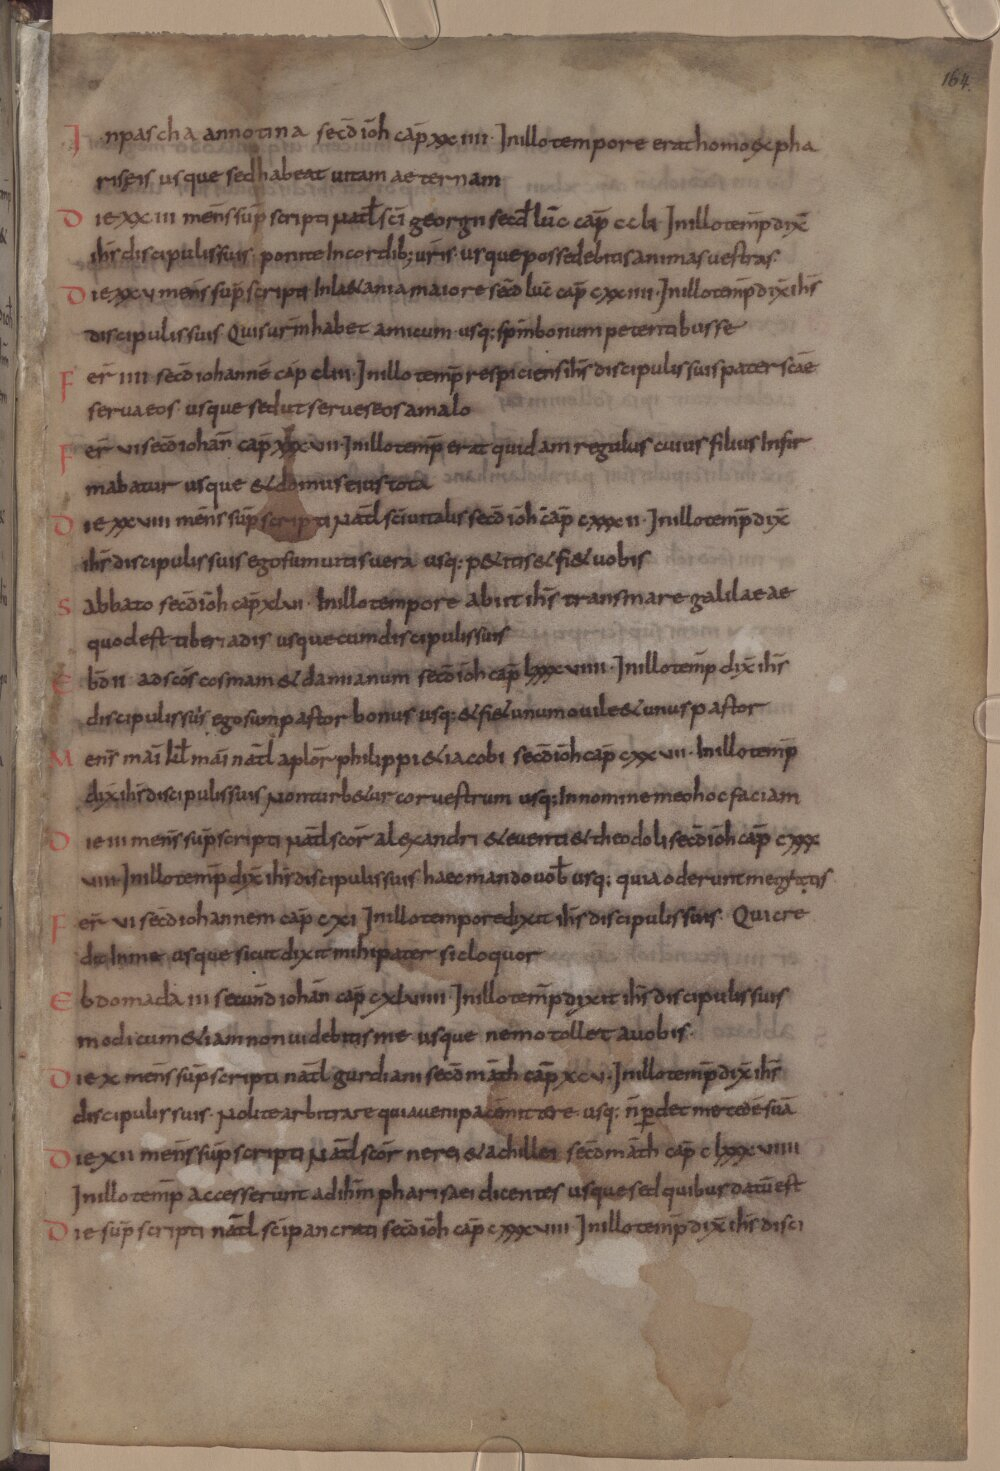 164
In pascha annotina secd ioh cap xxiiii. In illo tempore erat homo ex pha
riseis usque sed habeat uitam aeternam
Die xxiii mens sup scripti Natl sci georgii secd luc cap ccli In illo temp dix
ihs discipulis suis. ponite in cordib; uris. usque possedebitis animas uestras.
Die xxv mens sup scripti In laetania maiore secd luc cap cxxiiii. In illo temp dix ihs
discipulis suis Quis urm habet amicum. usq; spm bonum petentibus se
Fer iiii secd iohanne cap cliii. In illo temp respiciens ihs discipulis suis pater scae
serua eos. usque sed ut serues eos a malo
Fer vi secd iohan cap xxxvii. In illo temp erat quidam regulus cuius filius infir
mabatur usque & domus eius tota
Die xxviii mens sup scripti Natl sci uitalis secd ioh cap cxxxii. In illo temp dix
ihs discipulis suis ego sum uitis uera usq; p&itis & fi& uobis
Sabbato secd ioh cap xlvi. In illo tempore abiit ihs trans mare galilaeae
quod est tiberiadis usque cum discipulis suis
Ebd ii ad scos cosmam & damianum secd ioh cap lxxxviiii. In illo temp dix ihs
discipulis suis ego sum pastor bonus usq; & fi& unum ouile & unus pastor
Mens mai kl mai natl aplor philippi & iacobi secd ioh cap cxxvii. In illo temp
dix ihs discipulis suis Non turb&ur cor uestrum usq; In nomine meo hoc faciam
Die iii mens sup scripti Natl scor alexandri & euenti & theodoli secd ioh cap cxxx
viiii. In illo temp dix ihs discipulis suis haec mando uob usq; quia oderunt me gratis
Fer vi secd iohannem cap cxi In illo tempore dixit ihs discipulis suis. Qui cre
dit in me usque sicut dixit mihi pater sic loquor
Ebdomada iii secund iohan cap cxlviiii In illo temp dixit ihs discipulis suis
modicum & iam non uidebitis me usque nemo tollet a uobis.
Die x mens sup scripti natl gurdiani secd math cap xcv. In illo temp dix ihs
discipulis suis. Nolite arbitrare quia ueni pacem mittere. usq; n pdet mercede sua
Die xii mens sup scripti Natl scor nerei & achillei secd math cap clxxxviiii
In illo temp accesserunt ad ihm pharisaei dicentes usque sed quibus datu est
Die sup scripti natl sci pancrati secd ioh cap cxxxviii In illo temp dix ihs disci